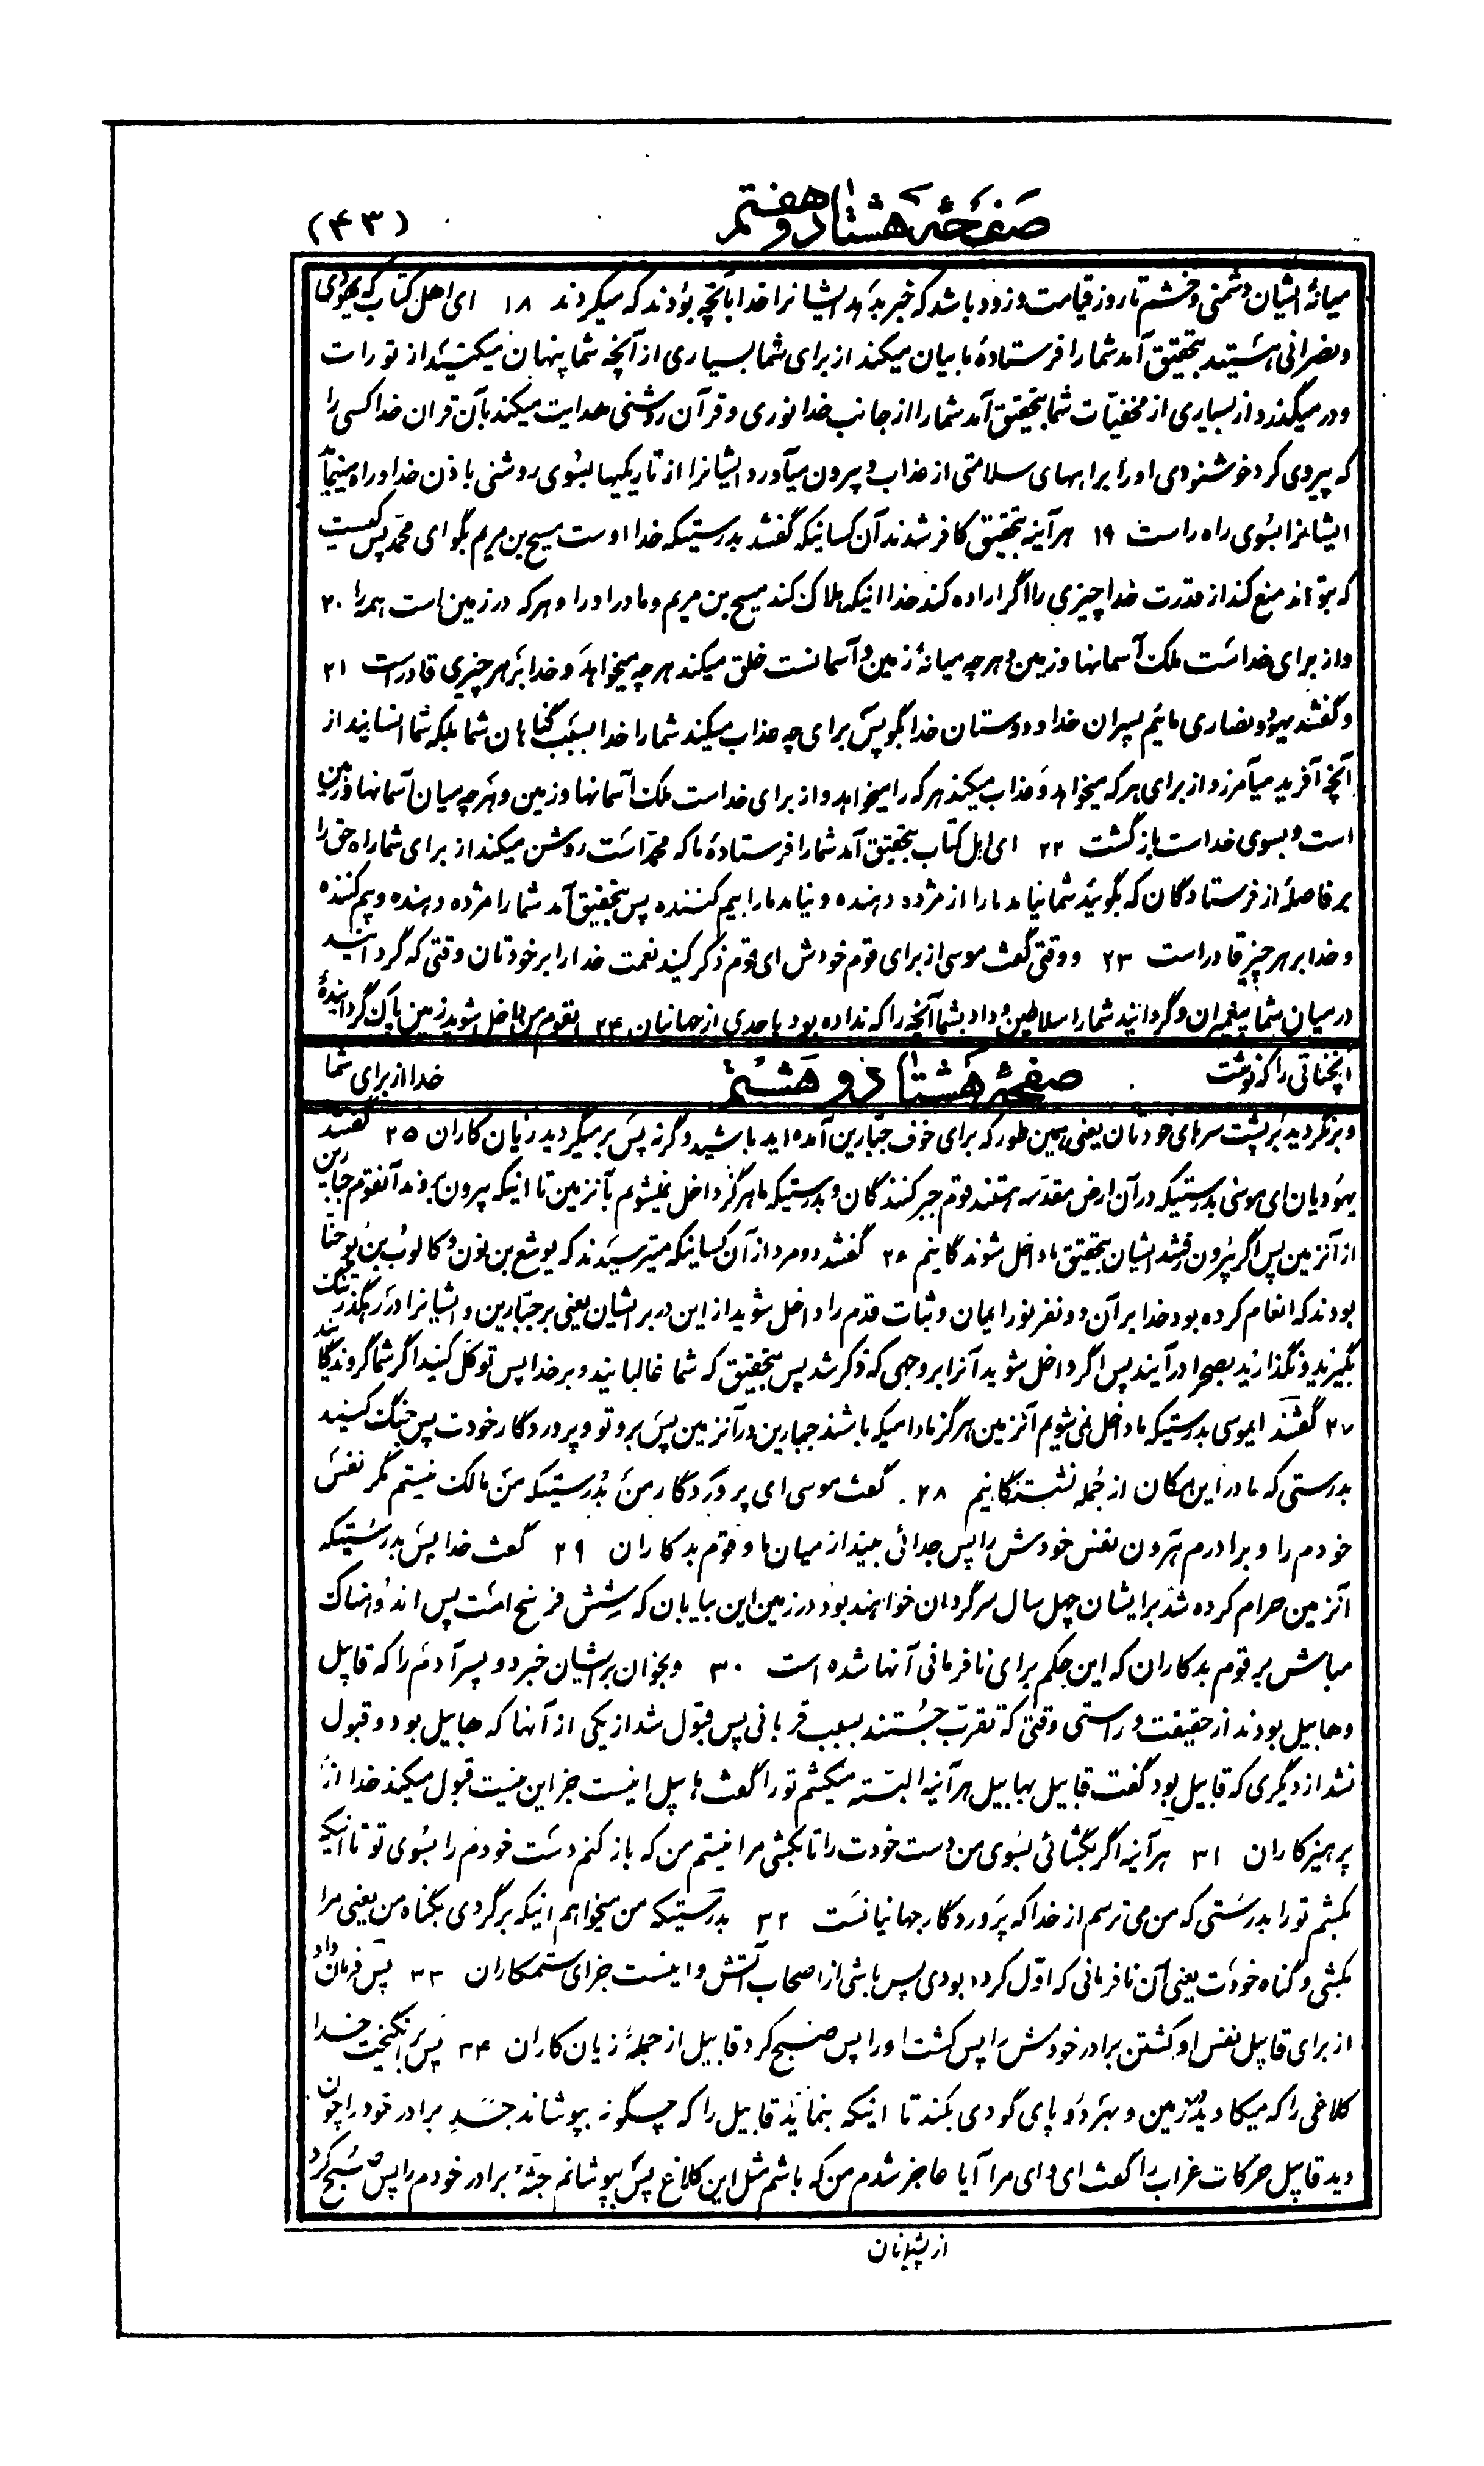 صفحهٔ هشتاد و هفتم
(۴۳)
میانهٔ ایشان دشمنی و خشم تا روز قیامت و زود باشد که خبر بدهد ایشانرا خدا بآنچه بودند که میکردند ۱۸ ای اهل کتاب که یهودی
و نصرانی هستید بتحقیق آمد شما را فرستادهٔ ما بیان میکند از برای شما بسیاری از آنچه شما پنهان میکنید از تورات
و درمیگذرد از بسیاری از مخفیّات شما بتحقیق آمد شما را از جانب خدا نوری و قرآن روشنی هدایت میکند بآن قران خدا کسی را
که پیروی کرد خوشنودی او را براههای سلامتی از عذاب و بیرون میآورد ایشانرا از تاریکیها بسوی روشنی باذن خدا و راه مینماید
ایشانرا بسوی راه راست ۱۹ هرآینه بتحقیق کافر شدند آن کسانیکه گفتند بدرستیکه خدا اوست مسیح بن مریم بگو ای محمّد پس کیست
که بتواند منع کند از قدرت خدا چیزی را اگر اراده کند خدا اینکه هلاک کند مسیح بن مریم و مادر او را و هر که در زمین است همه را ۲۰
و از برای خداست ملک آسمانها و زمین و هرچه میانهٔ زمین و آسمانست خلق میکند هرچه میخواهد و خدا بر هر چیزی قادر است ۲۱
و گفتند یهود و نصاری مائیم پسران خدا و دوستان خدا بگو پس برای چه عذاب میکند شما را خدا بسبب گناهان شما بلکه شما انسانید از
آنچه آفرید میآمرزد از برای هر که میخواهد و عذاب میکند هر که را میخواهد و از برای خداست ملک آسمانها و زمین و هرچه میان آسمانها و زمین
است و بسوی خداست بازگشت ۲۲ ای اهل کتاب بتحقیق آمد شما را فرستادهٔ ما که محمّد است روشن میکند از برای شما راه حق را
بر فاصلهٔ از فرستادگان که بگوئید شما نیامد ما را از مژده دهنده و نیامد ما را بیم کننده پس بتحقیق آمد شما را مژده دهنده و بیم کننده
و خدا بر هر چیز قادر است ۲۳ و وقتی گفت موسی از برای قوم خودش ای قوم ذکر کنید نعمت خدا را بر خودتان وقتی که گردانید
در میان شما پیغمبران و گردانید شما را سلاطین و داد بشما آنچه را که نداده بود باحدی از جهانیان ۲۴ ایقوم من داخل شوید زمین پاک گردانیدهٔ
آنچنانی را که نوشت
صفحهٔ هشتاد و هشتم
خدا از برای شما
و برنگردید بر پشت سرهای خودتان یعنی همین طور که برای خوف جبّارین آمده اید باشید و گرنه پس برمیگردید زیان کاران ۲۵ گفتند
یهودیان ای موسی بدرستیکه در آن ارض مقدّسه هستند قوم جبر کنندگان و بدرستیکه ما هرگز داخل نمیشویم بآنزمین تا اینکه بیرون روند آنقوم جبارین
از آنزمین پس اگر بیرون رفتند ایشان بتحقیق ما داخل شوندگانیم ۲۶ گفتند دو مرد از آن کسانیکه میترسیدند که یوشع بن نون و کالوب بن یوحنّا
بودند که انعام کرده بود خدا بر آن دو نفر نور ایمان و ثبات قدم را داخل شوید از این در بر ایشان یعنی بر جبّارین و ایشانرا در رهگذر تنگ
بگیرید و نگذارید بصحرا درآیند پس اگر داخل شوید آنرا بر وجهی که ذکر شد پس بتحقیق که شما غالبانید و بر خدا پس توکّل کنید اگر شما گروندگانید
۲۷ گفتند ایموسی بدرستیکه ما داخل نمی شویم آنزمین هرگز مادامیکه باشند جبارین در آنزمین پس برو تو و پروردگار خودت پس جنگ کنید
بدرستی که ما در این مکان از جمله نشستگانیم ۲۸ گفت موسی ای پروردگار من بدرستیکه من مالک نیستم مگر نفس
خودم را و برادرم هرون نفس خودش را پس جدائی بینداز میان ما و قوم بدکاران ۲۹ گفت خدا پس بدرستیکه
آنزمین حرام کرده شد بر ایشان چهل سال سرگردان خواهند بود در زمین این بیابان که شش فرسخ است پس اندوهناک
مباش بر قوم بدکاران که این حکم برای نافرمانی آنها شده است ۳۰ و بخوان بر ایشان خبر دو پسر آدم را که قابیل
و هابیل بودند از حقیقت و راستی وقتی که تقرّب جستند بسبب قربانی پس قبول شد از یکی از آنها که هابیل بود و قبول
نشد از دیگری که قابیل بود گفت قابیل بهابیل هرآینه البتّه میکشم تو را گفت هابیل اینست جز این نیست قبول میکند خدا از
پرهیزکاران ۳۱ هرآینه اگر بگشائی بسوی من دست خودت را تا بکشی مرا نیستم من که باز کنم دست خودم را بسوی تو تا اینکه
بکشم تو را بدرستی که من می ترسم از خدا که پروردگار جهانیانست ۳۲ بدرستیکه من میخواهم اینکه برگردی بگناه من یعنی مرا
بکشی و گناه خودت یعنی آن نافرمانی که اوّل کرده بودی پس باشی از اصحاب آتش و اینست جزای ستمکاران ۳۳ پس فرمان داد
از برای قابیل نفس او کشتن برادر خودش را پس کشت او را پس صبح کرد قابیل از جملهٔ زیان کاران ۳۴ پس برانگیخت خدا
کلاغی را که میکاوید در زمین و بهر دو پای گودی بکند تا اینکه بنماید قابیل را که چگونه بپوشاند جسد برادر خود را چون
دید قابیل حرکات غراب را گفت ای وای مرا آیا عاجز شدم من که باشم مثل این کلاغ پس بپوشانم جثّهٔ برادر خودم را پس صبح کرد
از پشیمانان